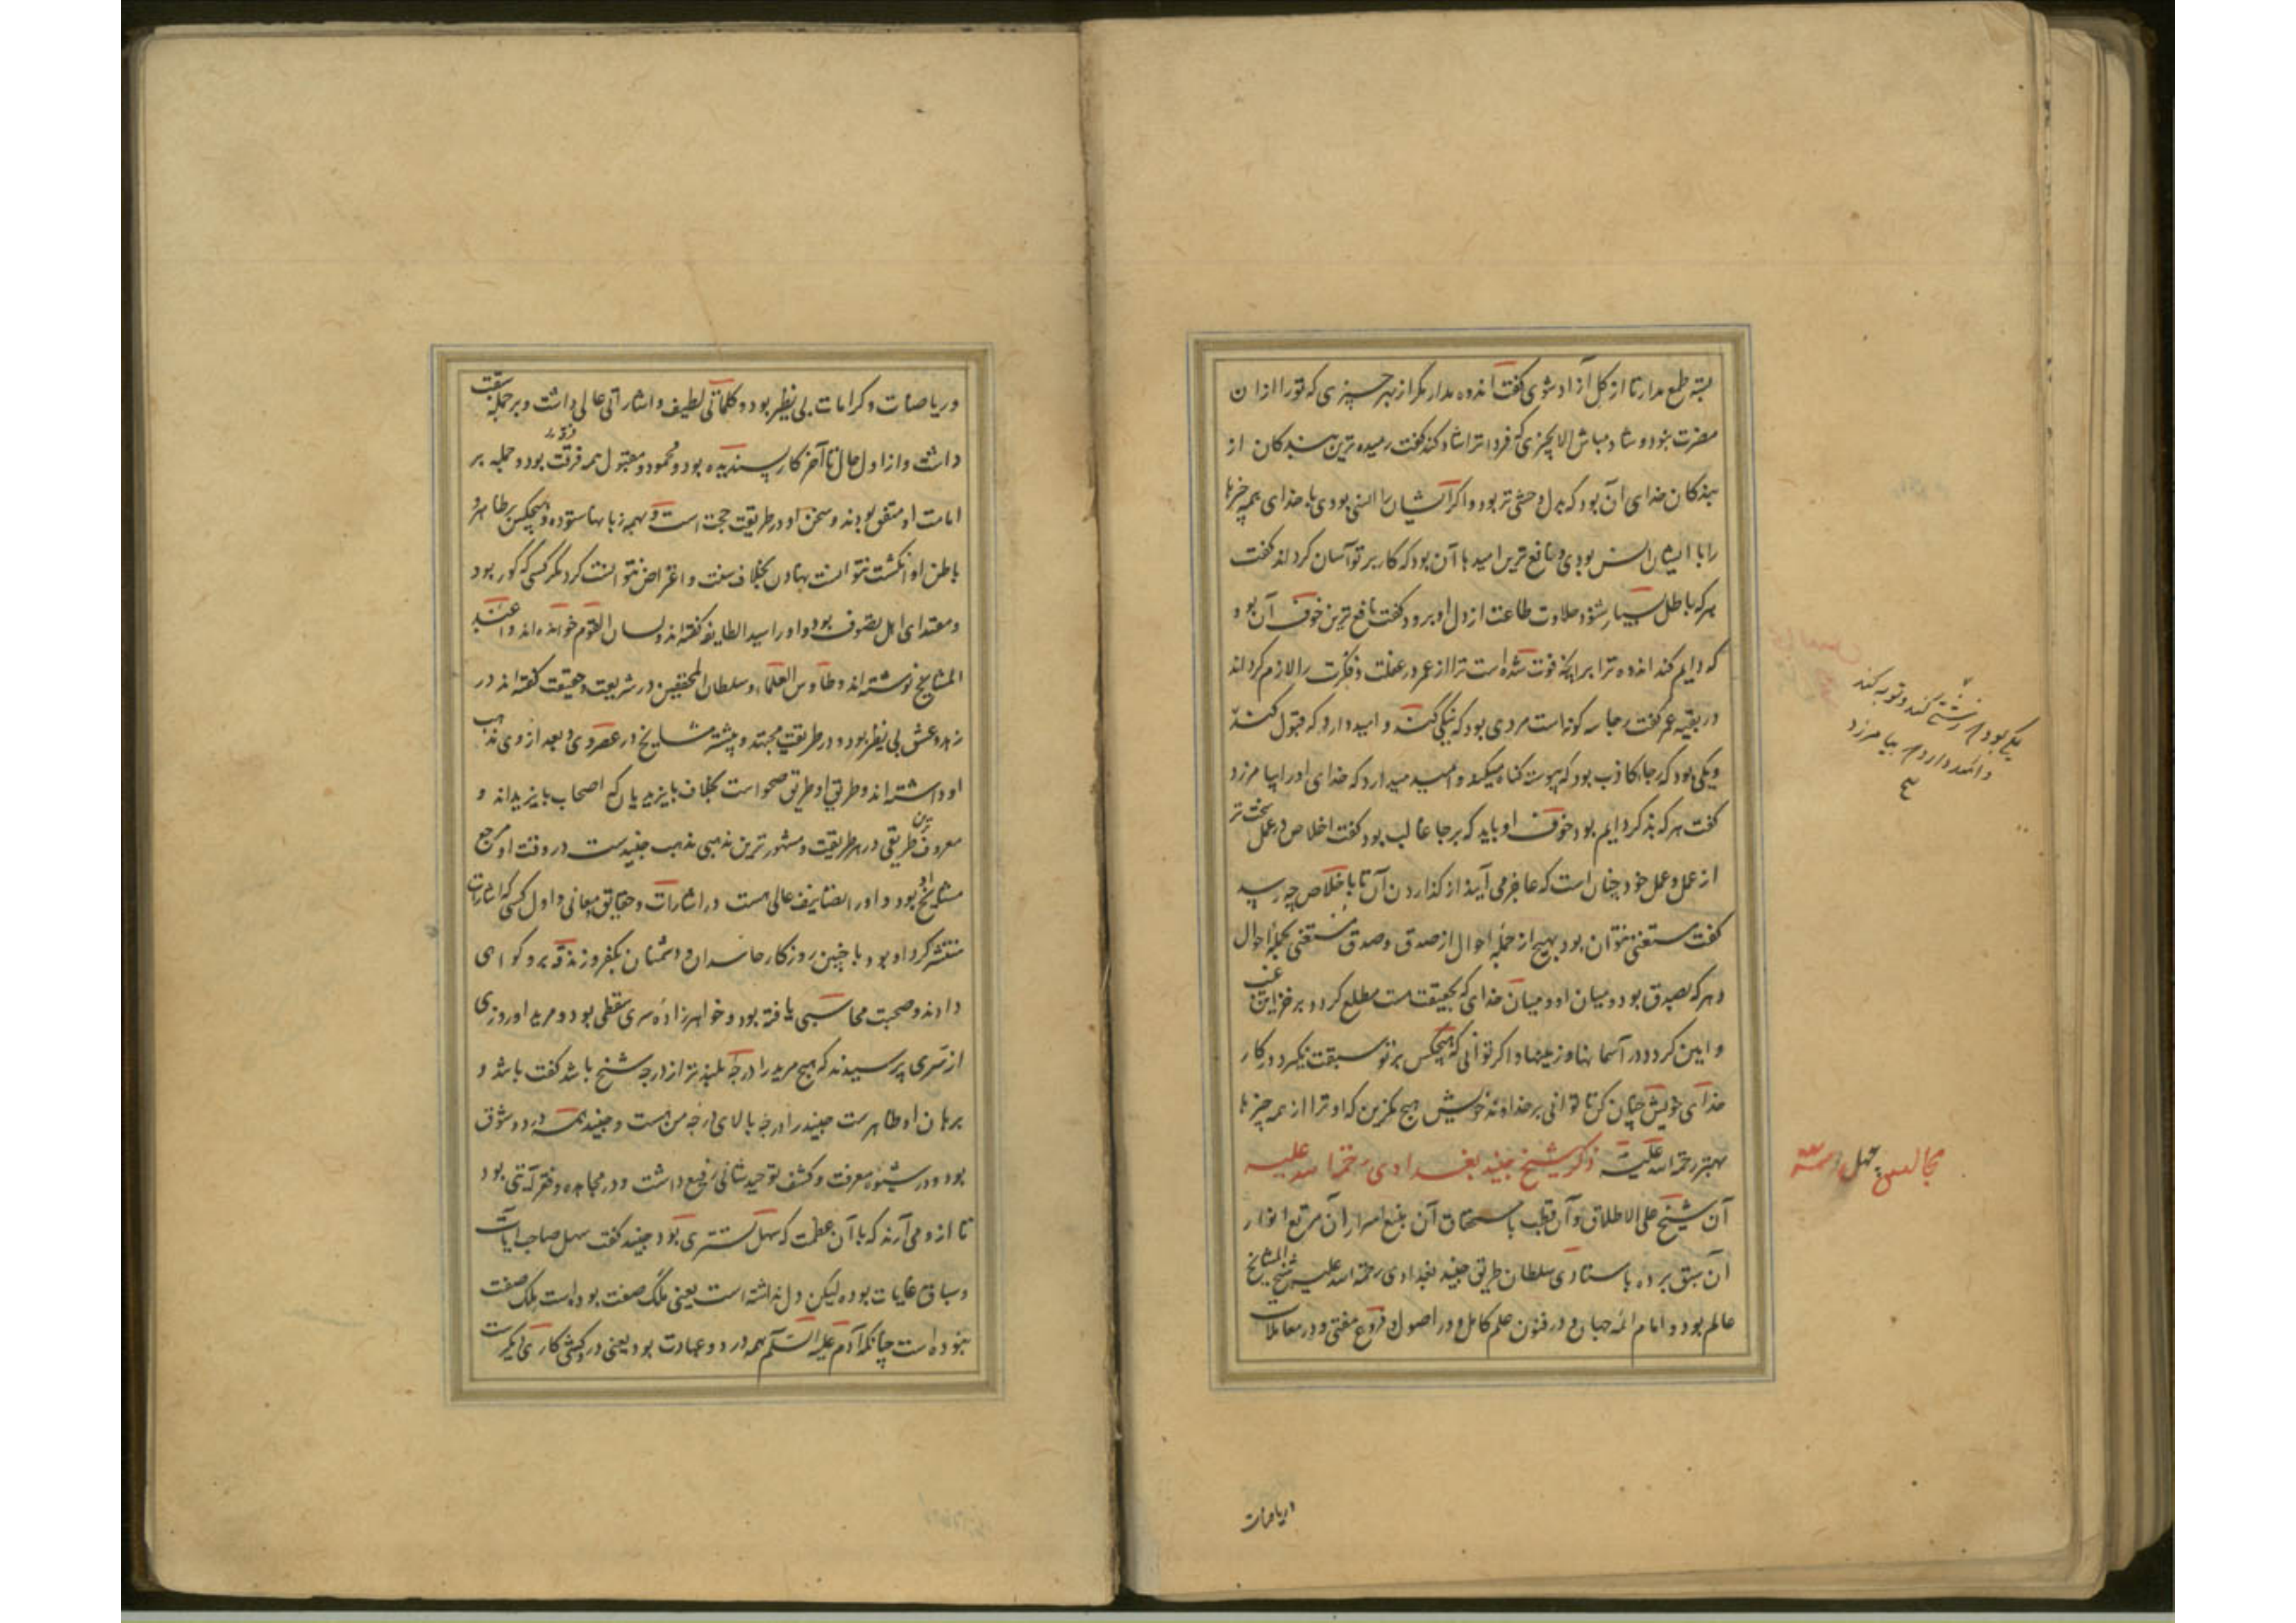 بسته طمع مدار تا از کل آزاد شوی گفت اندوه مدار مگر از بهر چیزی که تو را از آن
مضرت بود و شاد مباش الا بچیزی که فردا ترا شاد کند گفت رمیده ترین بندگان از
بندگان خدای آن بود که بدل وحشی تر بود و اگر ایشان را انسی بودی با خدای همه چیزها
را با ایشان انس بودی و نافع ترین امیدها آن بود که کار بر تو آسان کرداند گفت
هرکه باطل بسیار شنود حلاوت طاعت از دل او برود گفت نافع ترین خوف آن بود
که دایم کند اندوه ترا بر آنچه فوت شده است ترا از عمر در غفلت و فکرت را لازم کرداند
در بقیه عمر گفت رجا سه کونه است مردی بود که نیکی کند و امید دارد که قبول کنند
و یکی بود که رجا کاذب بود که پیوسته گناه میکند و امید میدارد که خدای او را بیامرزد
گفت هرکه بدکردار ایم بود خوف او باید که بر رجا غالب بود گفت اخلاص در عمل سخت تر
از عمل و عمل خود چنان است که عاجز می آیند از گذاردن آن تا باخلاص چه رسد
گفت مستغنی نتوان بود بهیچ از جمله احوال از صدق و صدق مستغنی بجمله احوال
و هرکه بصدق بود در میان او و میان خدای که بحقیقت هست مطلع کردد بر خزاین غیب
و امین کردد در آسمانها و زمینها و اگر توانی که هیچکس بر تو سبقت نگیرد در کار
خدای خویش چنان کن تا توانی بر خداوند خویش هیچ مگزین که او ترا از همه چیزها
بهتر رحمة الله علیه ذکر شیخ جنید بغدادی رحمة الله علیه
آن شیخ علی الاطلاق و آن قطب باستحقاق آن منبع اسرار آن مرتع انوار
آن سبق برده باستادی سلطان طریق جنید بغدادی رحمة الله علیه شیخ المشایخ
عالم بود و امام ائمه جهان و در فنون علم کامل و در اصول و فروع مفتی و در معاملات
یکی بود که زشتی کند و توبه کند
و امید دارد که بیامرزد
مجالس چهل
و ریاضات
و ریاضات و کرامات بی نظیر بود و کلماتی لطیف و اشاراتی عالی داشت و بر جمله سبقت
داشت و از اول حال تا آخر کار پسندیده بود و محمود و مقبول همه فرقت بود و جمله بر
امامت او متفق بودند و سخن او در طریقت حجت است و بهمه زبانها ستوده و هیچکس بر ظاهر و
باطن او انگشت نتوانست نهادن بخلاف سنت و اعتراض نتوانست کرد مگر کسی که کور بود
و مقتدای اهل تصوف بود و او را سید الطایفه گفته اند و لسان القوم خوانده اند و اعبد
المشایخ نوشته اند و طاوس العلماء و سلطان المحققین در شریعت و حقیقت گفته اند در
زهد و عشق بی نظیر بود و در طریقت مجتهد و بیشتر مشایخ در عصر وی و بعد از وی مذهب
او داشته اند و طریق او طریق صحو است بخلاف بایزیدیان که اصحاب بایزید اند و
معروف ترین طریقی در طریقت و مشهور ترین مذهبی مذهب جنید ست در وقت او مرجع
مشایخ او بود و او را تصانیف عالی هست در اشارات و حقایق و معانی و اول کسی که اشارات
منتشر کرد او بود و با چنین روزکار حاسدان و دشمنان بکفر و زندقه برو کواهی
دادند و صحبت محاسبی یافته بود و خواهرزاده سری سقطی بود و مرید او روزی
از سری پرسیدند که هیچ مرید را درجه بلندتر از درجه شیخ باشد گفت باشد و
برهان او ظاهرست جنید را درجه بالای درجه من هست و جنید همه درد و شوق
بود و در شیوه معرفت و کشف توحید شانی رفیع داشت و در مجاهده و فقر آیتی بود
تا ازو می آرند که با آن عظمت که سهل تستری بود جنید گفت سهل صاحب آیات
و سباق غایات بوده لیکن دل نداشته است یعنی ملک صفت بوده است ملک صفت
نبوده است چنانکه آدم علیه السلم همه درد و عبادت بود یعنی در کشی کاری دیگرست